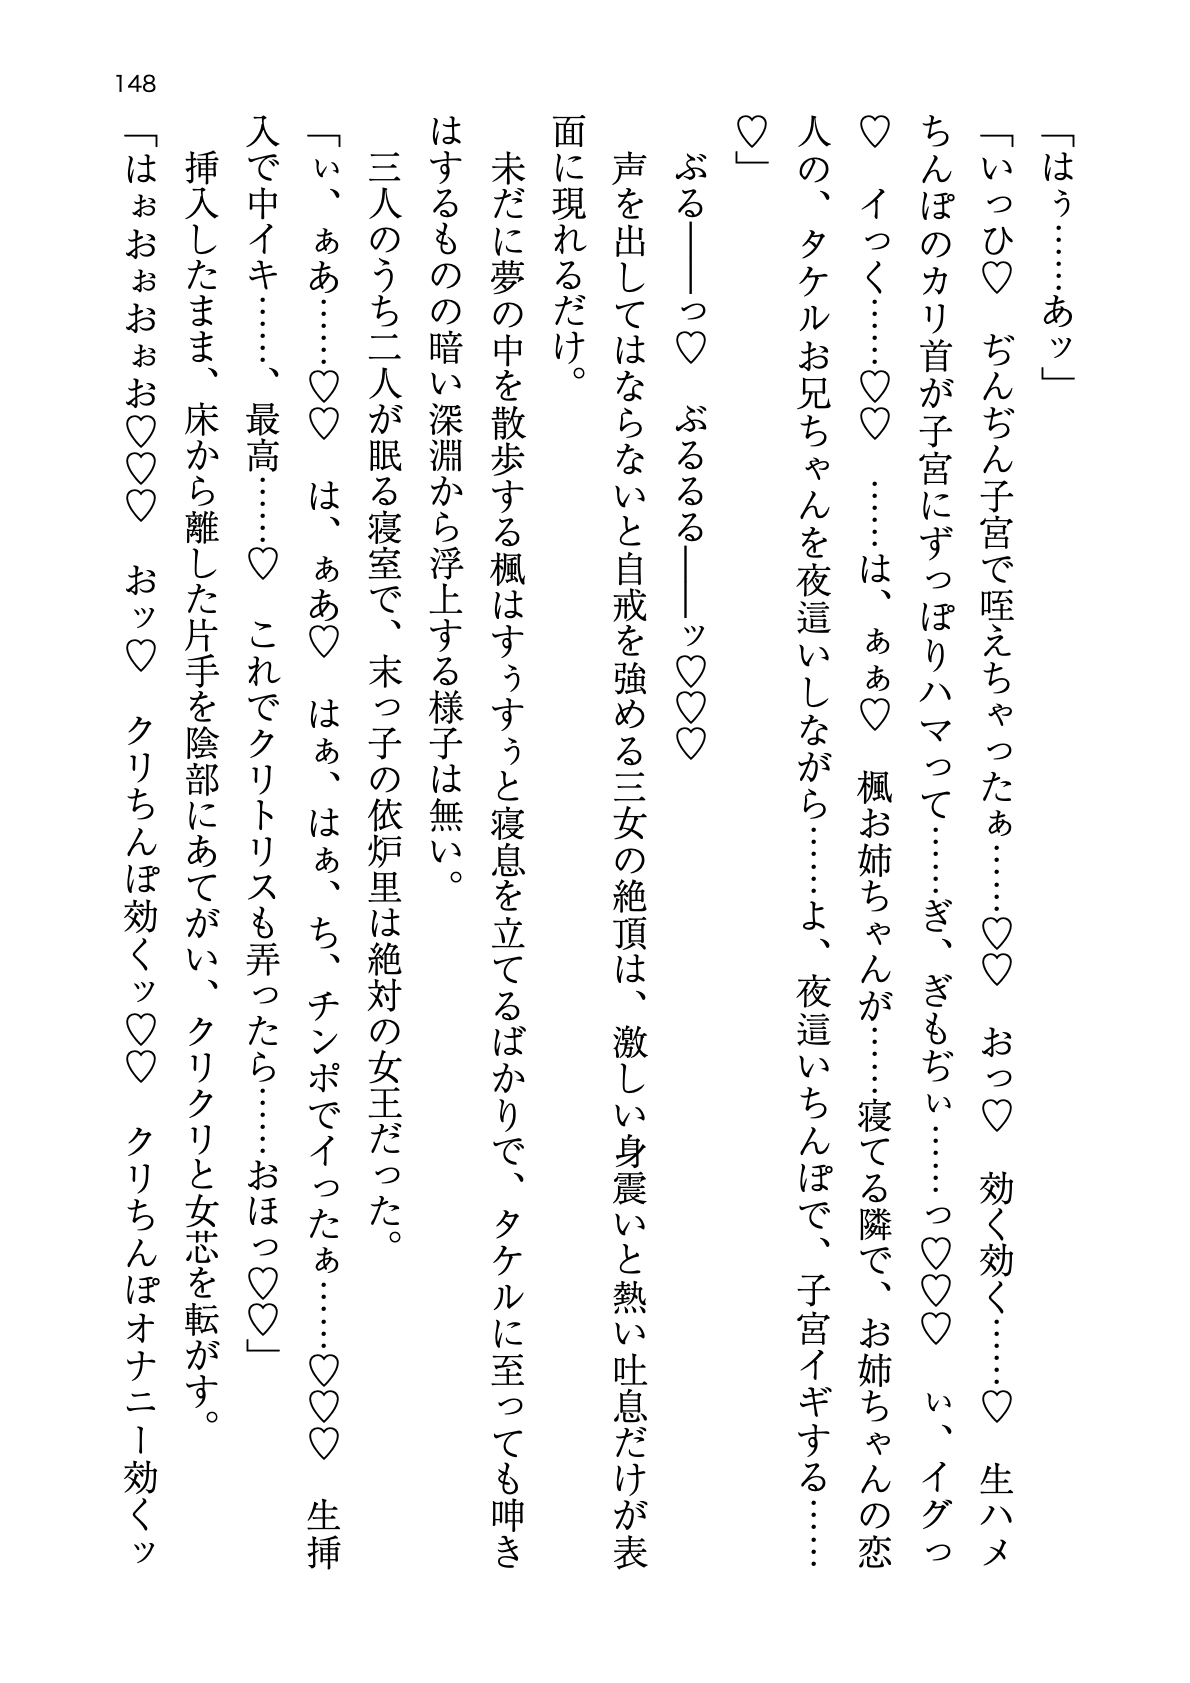 148
「はぅ……あッ」
「いっひ♡　ぢんぢん子宮で咥えちゃったぁ……♡♡　おっ♡　効く効く……♡　生ハメ
ちんぽのカリ首が子宮にずっぽりハマって……ぎ、ぎもぢぃ……っ♡♡♡　ぃ、イグっ
♡　イっく……♡♡　……は、ぁぁ♡　楓お姉ちゃんが……寝てる隣で、お姉ちゃんの恋
人の、タケルお兄ちゃんを夜這いしながら……よ、夜這いちんぽで、子宮イギする……
♡」
　ぶる――っ♡　ぶるるる――ッ♡♡♡
　声を出してはならないと自戒を強める三女の絶頂は、激しい身震いと熱い吐息だけが表
面に現れるだけ。
　未だに夢の中を散歩する楓はすぅすぅと寝息を立てるばかりで、タケルに至っても呻き
はするものの暗い深淵から浮上する様子は無い。
　三人のうち二人が眠る寝室で、末っ子の依炉里は絶対の女王だった。
「ぃ、ぁあ……♡♡　は、ぁあ♡　はぁ、はぁ、ち、チンポでイったぁ……♡♡♡　生挿
入で中イキ……、最高……♡　これでクリトリスも弄ったら……おほっ♡♡」
　挿入したまま、床から離した片手を陰部にあてがい、クリクリと女芯を転がす。
「はぉおぉおぉお♡♡♡　おッ♡　クリちんぽ効くッ♡♡　クリちんぽオナニー効くッ